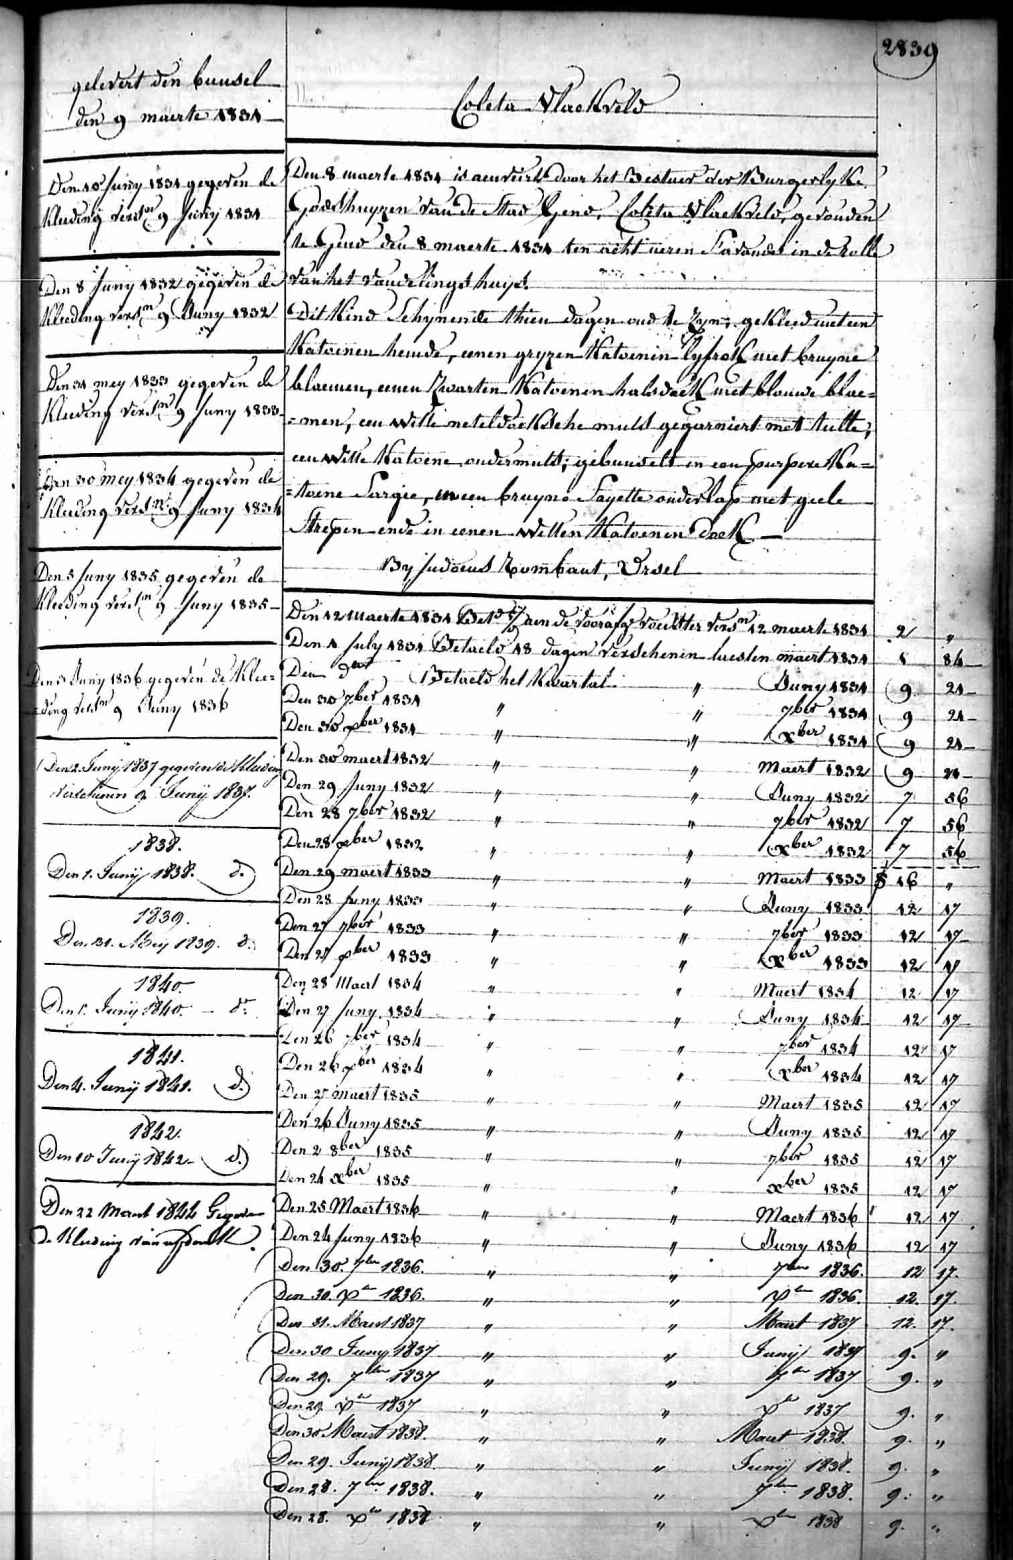 2839
gelevert den bunsel
den 9 maerte 1831
Coleta Vlackveld
Den 10 Juny 1831 gegeven de
Kleeding verst.n 9 Juny 1831
Den 8 Juny 1832 gegeven de
Kleeding verst.n 9 Juny 1832
Den 31 mey 1833 gegeven de
Kleeding verst.n 9 Juny 1833
Den 30 mey 1834 gegeven de
Kleeding verst.n 9 Juny 1834
Den 5 Juny 1835 gegeven de
Kleeding verst.n 9 Juny 1835
Den 3 Juny 1836 gegeven de Klee=
=ding verst.n 9 Juny 1836
Den 2 Junij 1837 gegeven de Kleeding
verschenen 9 Junij 1837.
1838.
Den 1. Junij 1838. d.o
1839.
Den 31. Meij 1839. d.o
1840.
Den 5. Junij 1840. d.o
1841.
Den 4. Junij 1841. d.o
1842.
Den 10 Junij 1842 d.o
Den 22 Maert 1844 Gegeven
de Kleeding van
Den 8 maerte 1831 is aenveird door het Bestuer der Burgerlyke
Godshuyzen van de Stad Gend, Coleta Vlackveld, gevonden
te Gend den 8 maerte 1831 ten acht uren s'avonds in de rolle
van het vondelingshuys.
Dit Kind Schynende thien dagen oud te Zyn; gekleed met een
Katoenen hemde, eenen gryzen Katoenen lyfrok met bruyne
bloemen, eenen Zwarten Katoenen halsdoek met blouwe bloe=
=men, een witte neteldoeksche muts gegarniert met tulle,
een witte Katoene ondermuts; gebunselt in een purpere Ka=
=toene Sargie, in een bruyne Sayette onderlap met geele
Strepen ende in eenen witten Katoenen doek
By Judocus Rombaut, Ursel
Den 12 Maerte 1831 Bet.d aen de voorafg. voedster verst.n 12 maerte 1831 2 "
Den 1 July 1831 Betaeld 18 dagen verschenen laesten maert 1831 1 84
Den d.o Betaeld het Kwartal " Juny 1831 9 24
Den 30 7ber 1831 " " 7ber 1831 9 24
Den 30 xber 1831 " " xber 1831 9 24
Den 30 maert 1832 " " Maert 1832 9 24
Den 29 Juny 1832 " " Juny 1832 7 56
Den 28 7ber 1832 " " 7ber 1832 7 56
Den 28 xber 1832 " " xber 1832 7 56
Den 29 maert 1833 " " Maert 1833 16 "
Den 28 Juny 1833 " " Juny 1833 12 17
Den 27 7ber 1833 " " 7ber 1833 12 17
Den 27 xber 1833 " " xber 1833 12 17
Den 28 Maert 1834 " " Maert 1834 12 17
Den 27 Juny 1834 " " Juny 1834 12 17
Den 26 7ber 1834 " " 7ber 1834 12 17
Den 26 xber 1834 " " xber 1834 12 17
Den 27 maert 1835 " " Maert 1835 12 17
Den 26 Juny 1835 " " Juny 1835 12 17
Den 2 8ber 1835 " " 7ber 1835 12 17
Den 24 xber 1835 " " xber 1835 12 17
Den 25 Maert 1836 " " Maert 1836 12 17
Den 24 Juny 1836 " " Juny 1836 12 17
Den 30. 7ber 1836. " " 7ber 1836. 12 17.
Den 30. xber 1836. " " xber 1836. 12. 17.
Den 31. Maert 1837 " " Maert 1837 12. 17.
Den 30 Junij 1837 " " Junij 1837 9. "
Den 29. 7ber 1837 " " 7ber 1837 9. "
Den 29 xr 1837 " " xr 1837 9. "
Den 30 Maert 1838. " " Maert 1838. 9. "
Den 29. Junij 1838. " " Junij 1838. 9. "
Den 28. 7ber 1838. " " 7ber 1838. 9. "
Den 28. xber 1838 " " xber 1838 9. "